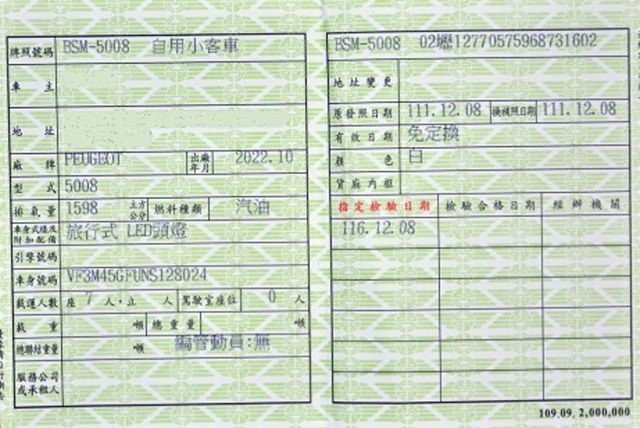 牌照號碼 BSM-5008 自用小客車
車主
地址
廠牌 PEUGEOT 出廠年月 2022.10
型式 5008
排氣量 1598 立方公分 燃料種類 汽油
車身式樣及附加配備 旅行式 LED頭燈
引擎號碼
車身號碼 VF3M45GFUNS128024
載運人數 座 7 人·立 人 駕駛室座位 0 人
載重 噸 總重量 噸
總聯結重量 噸 編管動員:無
服務公司或承租人
BSM-5008 02壢12770575968731602
地址變更
原發照日期 111.12.08 換補照日期 111.12.08
有效日期 免定換
顏色 白
貨廂內框
指定檢驗日期 檢驗合格日期 經辦機關
116.12.08
109.09. 2,000,000